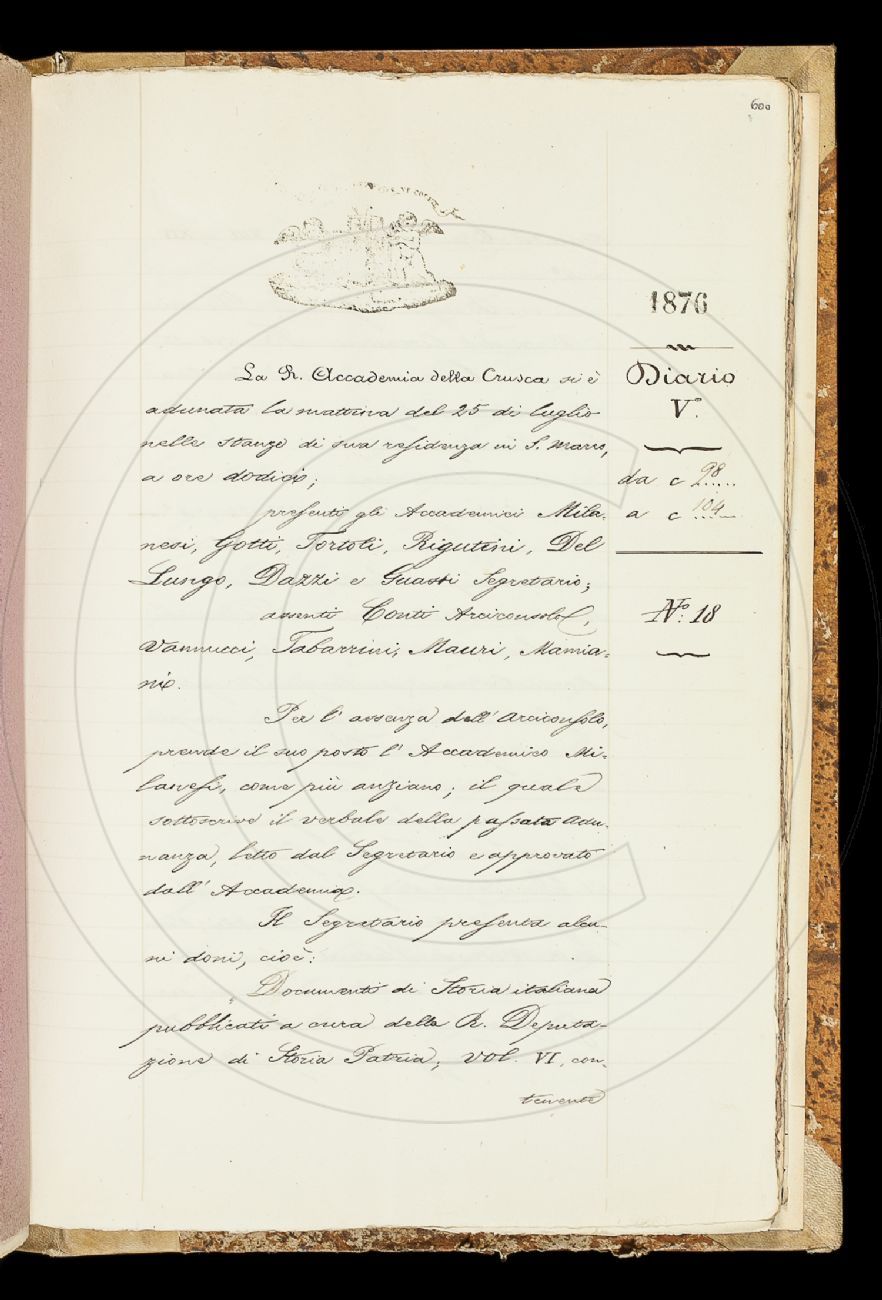 600
1876
Diario
V.°
da c 98
a c 104
N.° 18
La R. Accademia della Crusca si è
adunata la mattina del 25 di luglio
nelle stanze di sua residenza in S. Marco,
a ore dodici;
presenti gli Accademici Mila-
nesi, Gotti, Tortoli, Rigutini, Del
Lungo, Dazzi e Guasti Segretario;
assenti Conti Arciconsolo,
Vannucci, Tabarrini, Mauri, Mamia-
ni.
Per l' assenza dell' Arciconsolo,
prende il suo posto l' Accademico Mi-
lanesi, come più anziano; il quale
sottoscrive il verbale della passata adu-
nanza, letto dal Segretario e approvato
dall' Accademia.
Il Segretario presenta alcu-
ni doni, cioè:
Documenti di Storia italiana
pubblicati a cura della R. Deputa-
zione di Storia Patria, vol. VI, con-
tenente